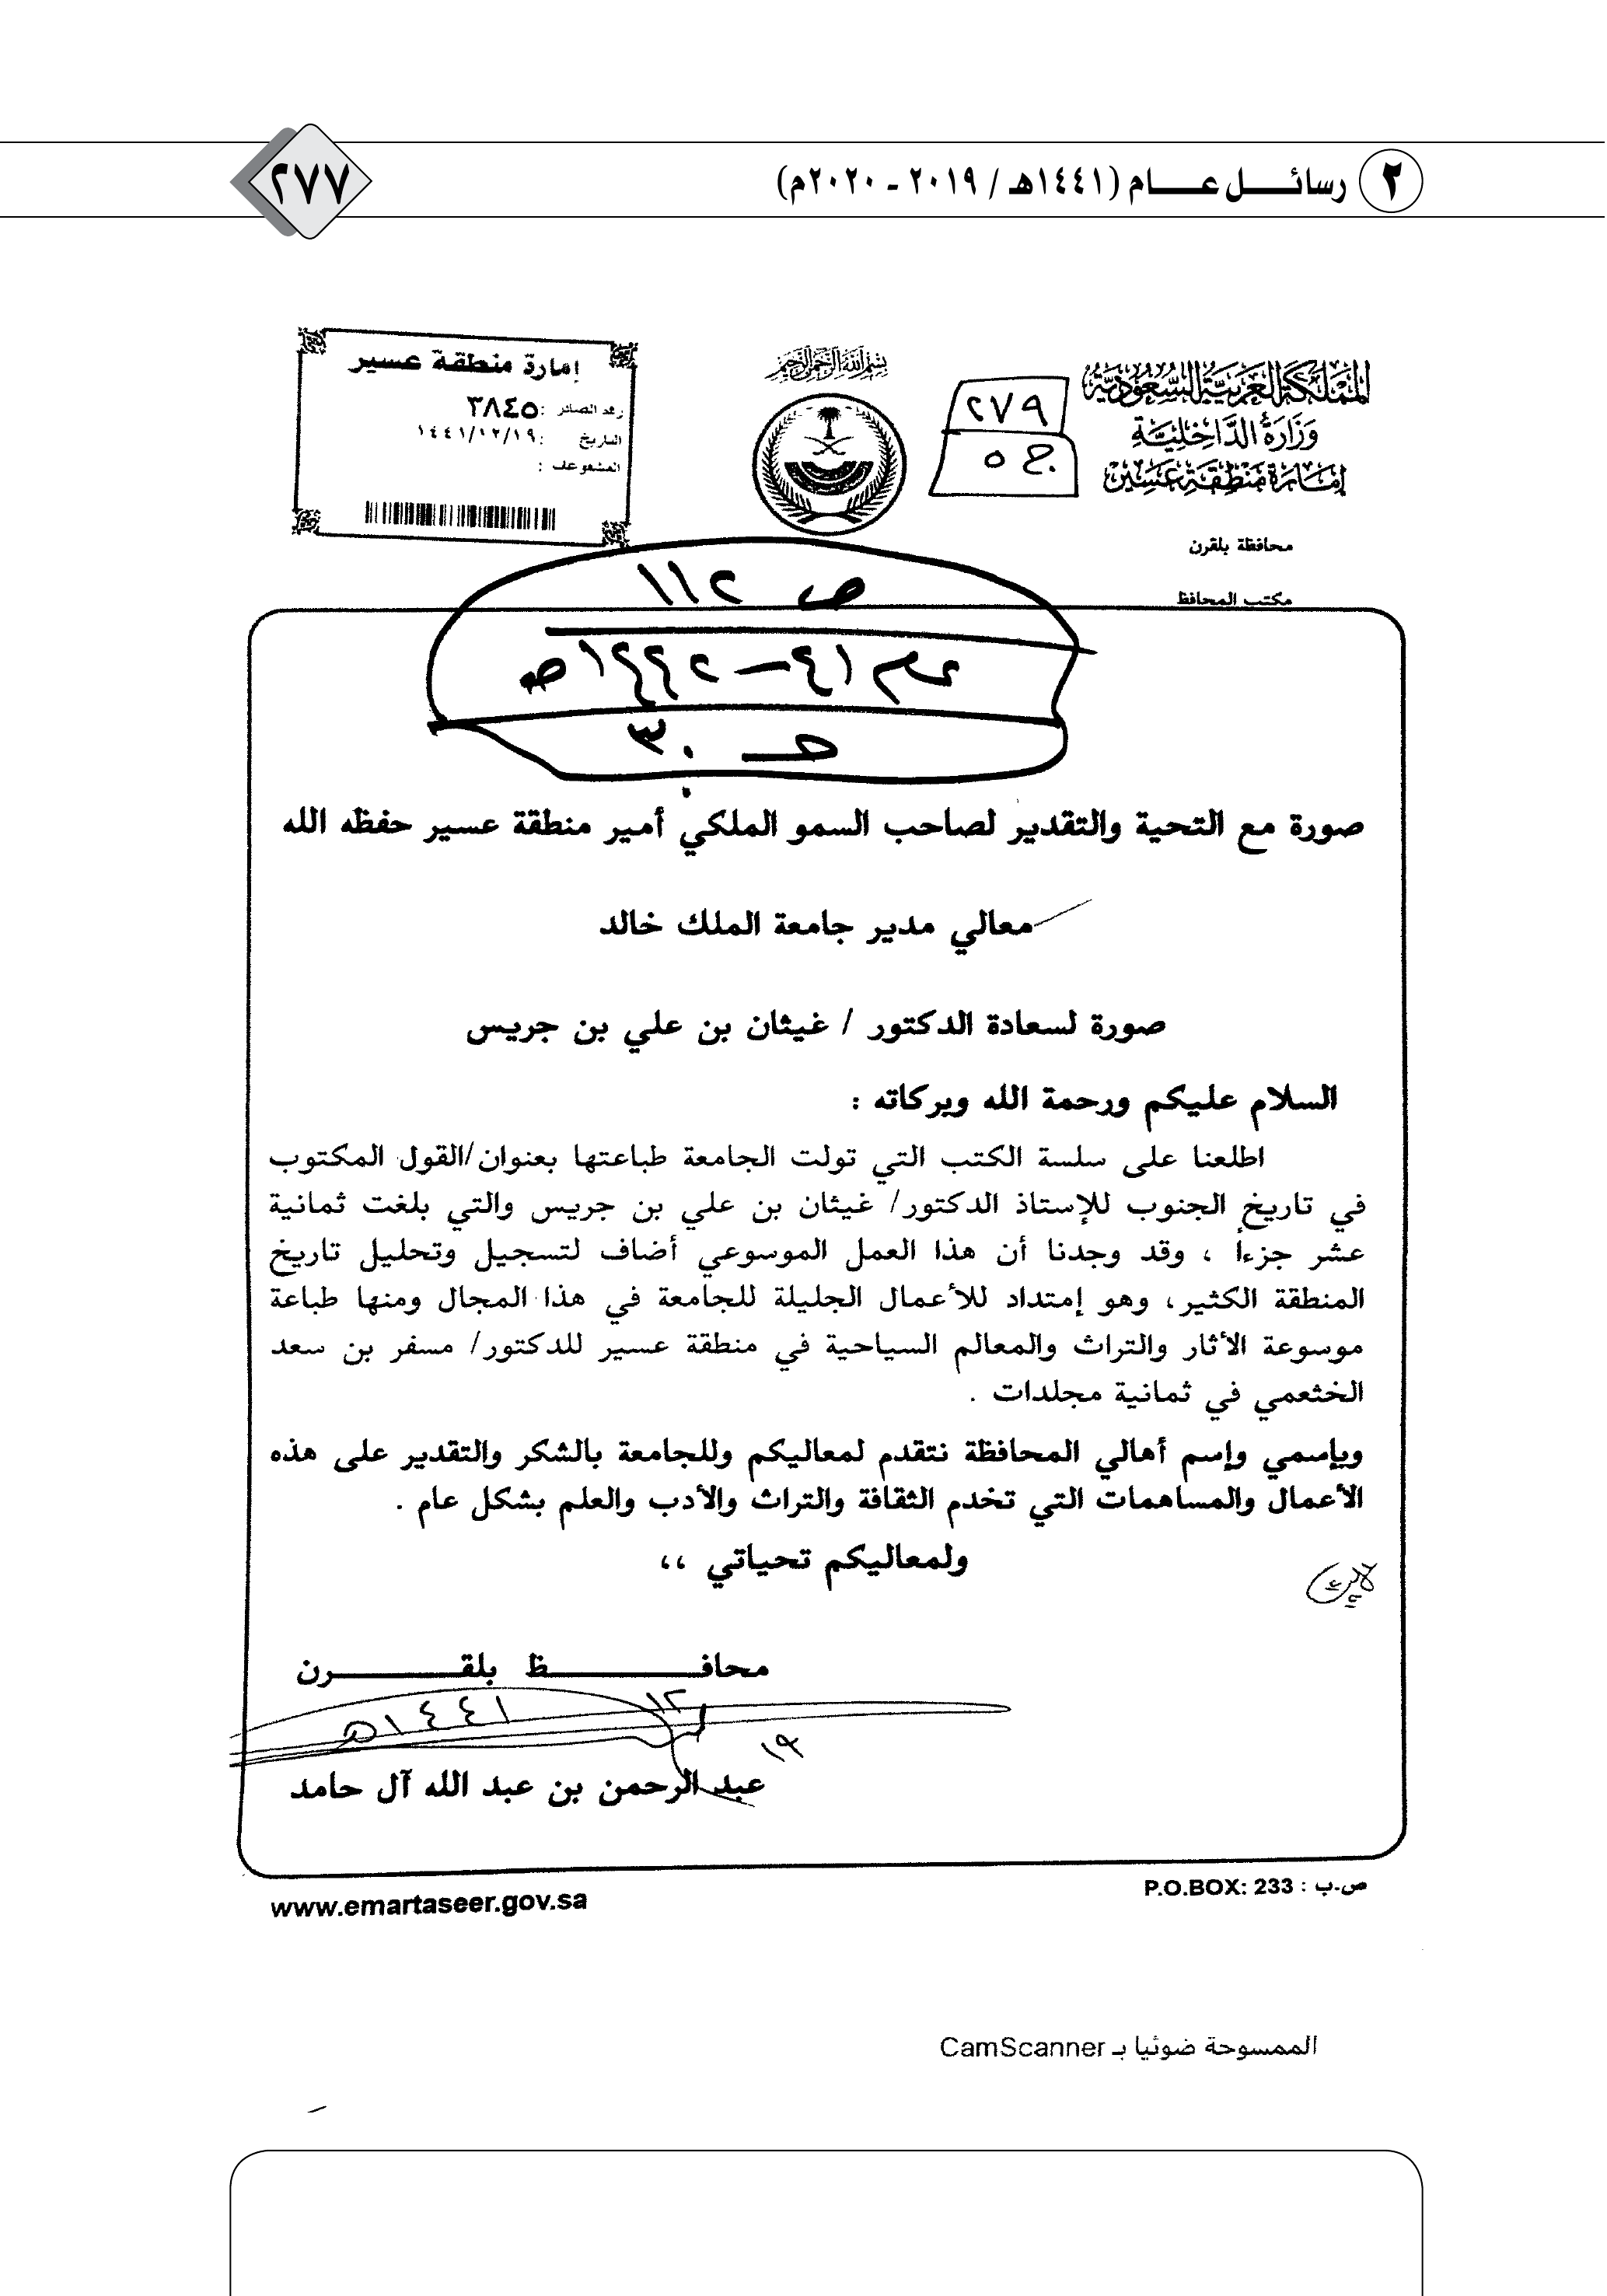 ٢ رسائــــل عــــــام (١٤٤١هـ / ٢٠١٩ - ٢٠٢٠م)
٢٧٧
المملكة العربية السعودية
وزارة الداخلية
إمارة منطقة عسير
محافظة بلقرن
مكتب المحافظ
٢٧٩
ج ٥
بسم الله الرحمن الرحيم
إمارة منطقة عسير
رقم الصادر : ٣٨٤٥
التاريخ : ١٤٤١/١٢/١٩
المشفوعات :
ص ١١٢
حـ ٣٠
صورة مع التحية والتقدير لصاحب السمو الملكي أمير منطقة عسير حفظه الله
معالي مدير جامعة الملك خالد
صورة لسعادة الدكتور / غيثان بن علي بن جريس
السلام عليكم ورحمة الله وبركاته :
اطلعنا على سلسة الكتب التي تولت الجامعة طباعتها بعنوان/القول المكتوب
في تاريخ الجنوب للإستاذ الدكتور/ غيثان بن علي بن جريس والتي بلغت ثمانية
عشر جزءاً ، وقد وجدنا أن هذا العمل الموسوعي أضاف لتسجيل وتحليل تاريخ
المنطقة الكثير، وهو إمتداد للأعمال الجليلة للجامعة في هذا المجال ومنها طباعة
موسوعة الأثار والتراث والمعالم السياحية في منطقة عسير للدكتور/ مسفر بن سعد
الخثعمي في ثمانية مجلدات .
وبإسمي وإسم أهالي المحافظة نتقدم لمعاليكم وللجامعة بالشكر والتقدير على هذه
الأعمال والمساهمات التي تخدم الثقافة والتراث والأدب والعلم بشكل عام .
ولمعاليكم تحياتي ،،
محافـــــــــــظ بلقـــــــــــرن
١٩ ١٢ ١٤٤١هـ
عبد الرحمن بن عبد الله آل حامد
ص.ب : P.O.BOX: 233
www.emartaseer.gov.sa
الممسوحة ضوئيا بـ CamScanner